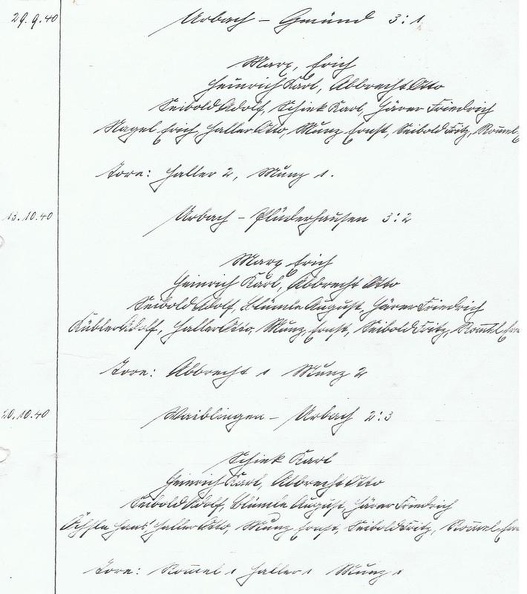 29.9.40 Urbach – Gmünd 3:1
Marx, Erich
Heinrich Karl, Abbrecht Otto
Seibold Adolf, Schiek Karl, Härer Friedrich
Nagel Erich, Haller Otto, Munz Ernst, Seibold Fritz, Rommel
Tore: Haller 2, Munz 1.
13.10.40 Urbach – Plüderhausen 3:2
Marx Erich
Heinrich Karl, Abbrecht Otto
Seibold Adolf, Blümle August, Härer Friedrich
Kübler Adolf, Haller Otto, Munz Ernst, Seibold Fritz, Rommel
Tore: Abbrecht 1 Munz 2
20.10.40 Waiblingen – Urbach 2:3
Schiek Karl
Heinrich Karl, Abbrecht Otto
Seibold Adolf, Blümle August, Härer Friedrich
Hans Haller Otto, Munz Ernst, Seibold Fritz, Rommel
Tore: Rommel 1 Haller 1 Munz 1